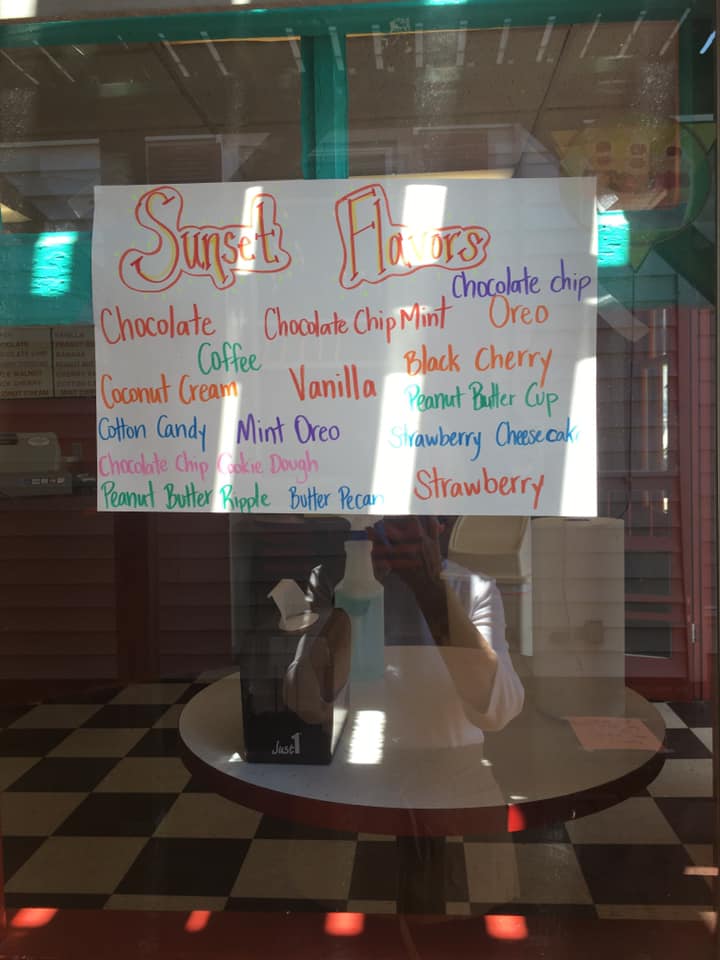 Sunset Flavors
Chocolate chip
Chocolate Chocolate Chip Mint Oreo
Coffee Black Cherry
Coconut Cream Vanilla Peanut Butter Cup
Cotton Candy Mint Oreo Strawberry Cheesecake
Chocolate Chip Cookie Dough
Peanut Butter Ripple Butter Pecan Strawberry
VANILLA
Just1